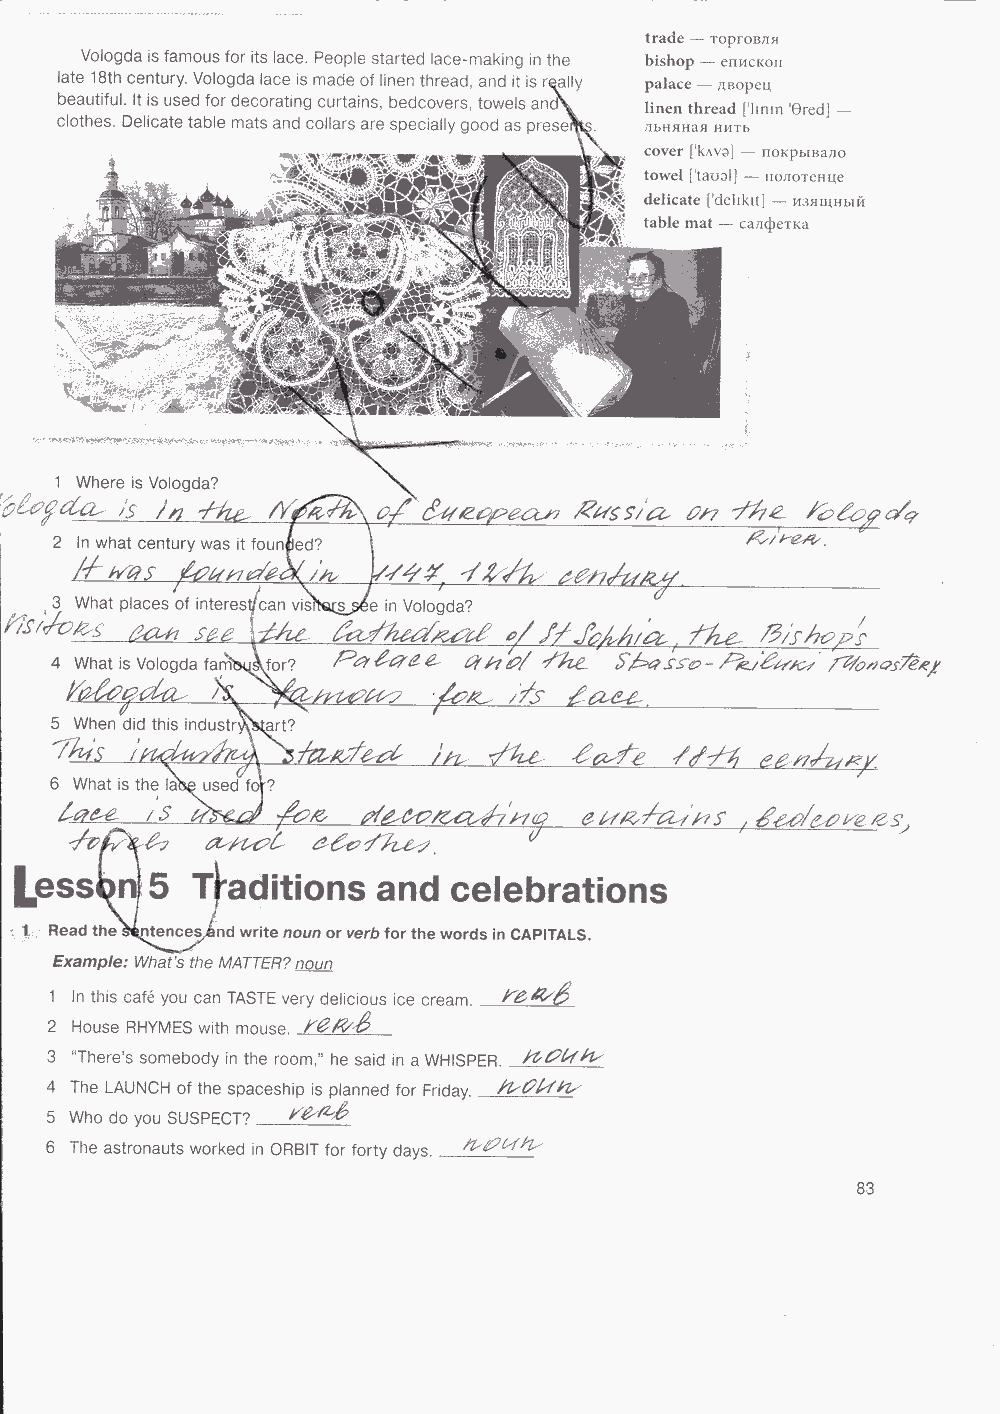 Vologda is famous for its lace. People started lace-making in the
late 18th century. Vologda lace is made of linen thread, and it is really
beautiful. It is used for decorating curtains, bedcovers, towels and
clothes. Delicate table mats and collars are specially good as presents.
trade — торговля
bishop — епископ
palace — дворец
linen thread ['lɪnɪn 'θred] —
льняная нить
cover ['kʌvə] — покрывало
towel ['taʊəl] — полотенце
delicate ['delɪkɪt] — изящный
table mat — салфетка
1 Where is Vologda?
Vologda is in the North of European Russia on the Vologda
River.
2 In what century was it founded?
It was founded in 1147, 12th century.
3 What places of interest can visitors see in Vologda?
Visitors can see the Cathedral of St Sophia, the Bishop's
Palace and the Spasso-Priluki Monastery
4 What is Vologda famous for?
Vologda is famous for its lace.
5 When did this industry start?
This industry started in the late 18th century.
6 What is the lace used for?
Lace is used for decorating curtains, bedcovers,
towels and clothes.
Lesson 5 Traditions and celebrations
1 Read the sentences and write noun or verb for the words in CAPITALS.
Example: What's the MATTER? noun
1 In this café you can TASTE very delicious ice cream. verb
2 House RHYMES with mouse. verb
3 "There's somebody in the room," he said in a WHISPER. noun
4 The LAUNCH of the spaceship is planned for Friday. noun
5 Who do you SUSPECT? verb
6 The astronauts worked in ORBIT for forty days. noun
83